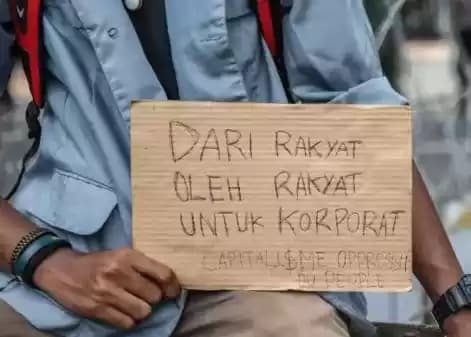 DARI RAKYAT
OLEH RAKYAT
UNTUK KORPORAT
CAPITALI$ME OPPRESSH
PEOPLE